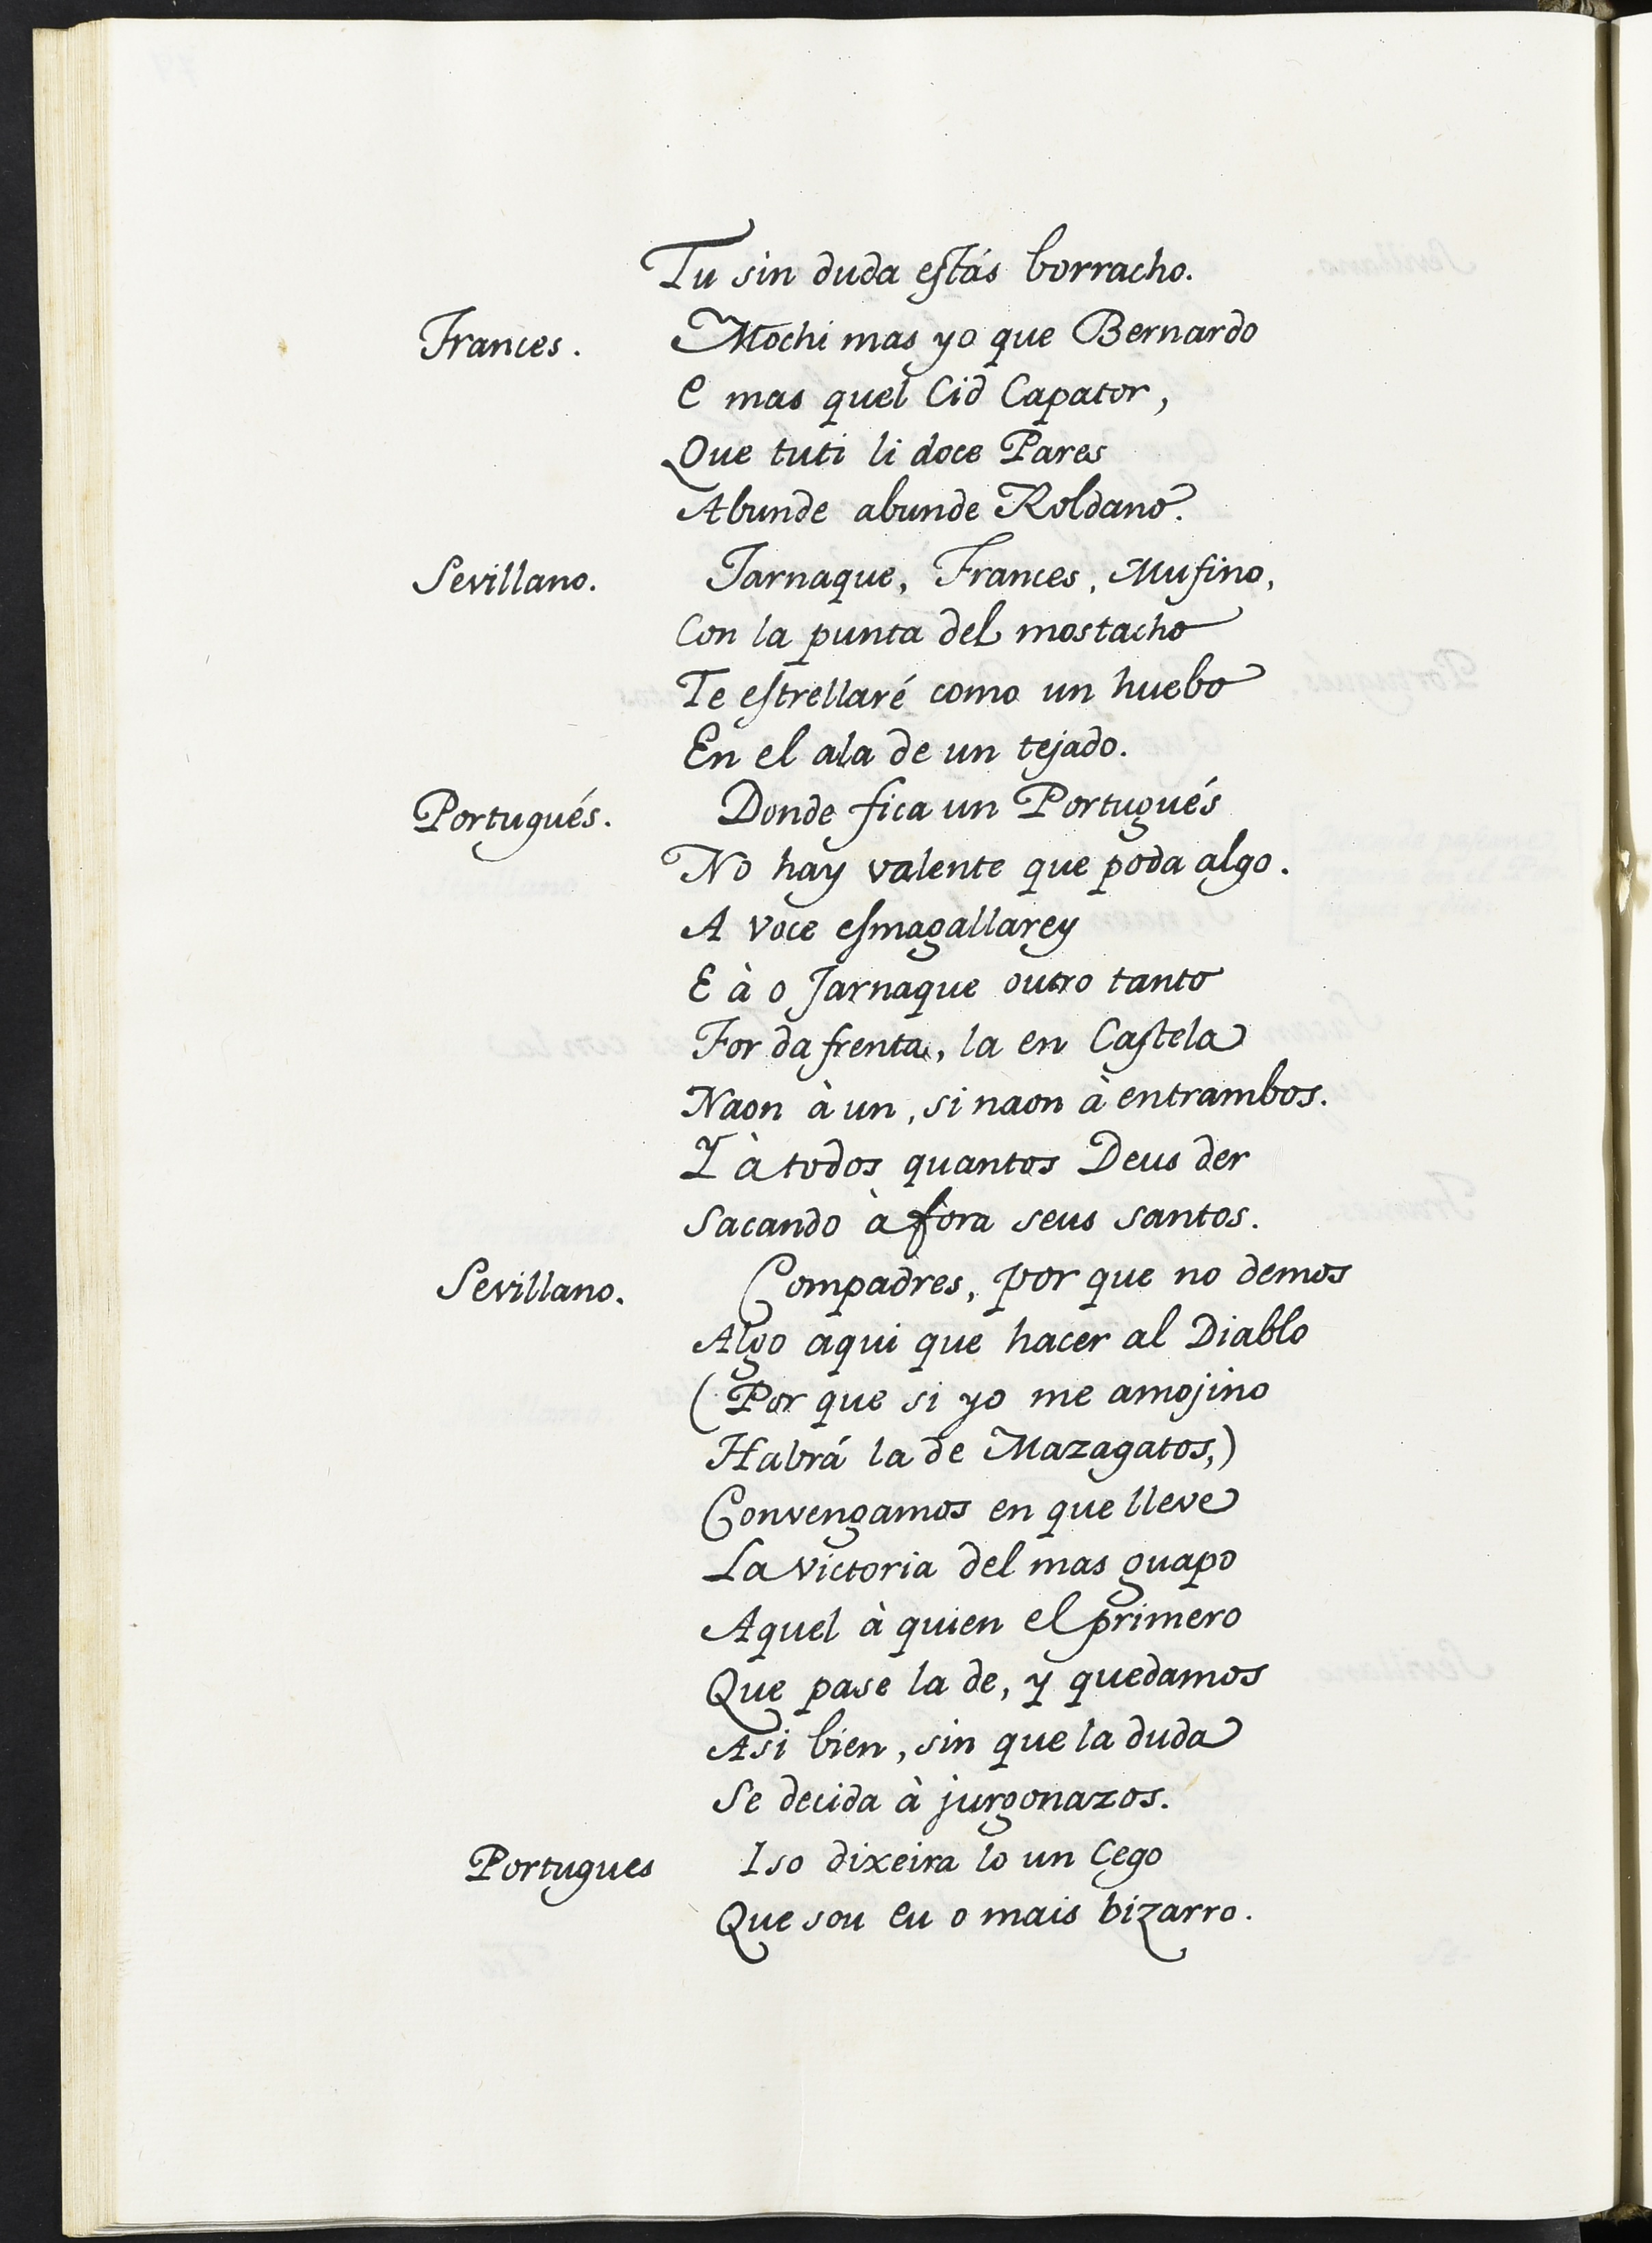 Tu sin duda estás borracho.
Frances. Mochi mas yo que Bernardo
e mas quel Cid Capator,
Que tuti li doce Pares
Abunde abunde Roldano.
Sevillano. Jarnaque, Frances, Mufino,
Con la punta del mostacho
Te estrellaré como un huebo
En el ala de un tejado.
Portugués. Donde fica un Portugués
No hay valente que poda algo.
A voce esmagallarey
E à o Jarnaque outro tanto
For da frenta, la en Castela
Naon à un, si naon à entrambos.
Y à todos quantos Deus der
Sacando à fora seus santos.
Sevillano. Compadres, por que no demos
Algo aqui que hacer al Diablo
(Por que si yo me amojino
Habrá la de Mazagatos,)
Convengamos en que lleve
La victoria del mas guapo
Aquel à quien el primero
Que pase la de, y quedamos
Asi bien, sin que la duda
Se decida à jurgonazos.
Portugues Iso dixeira lo un Cego
Que sou eu o mais bizarro.